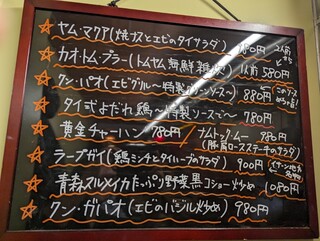 ☆ヤム・マクア(焼ナスとエビのタイサラダ) 780円
☆カオ・トム・プラー(トムヤム海鮮雑炊) 1人前 580円
☆クン・パオ(エビグリル〜特製グリーンソース〜) 880円
☆タイ式よだれ鶏〜特製ソースで〜 780円
☆黄金チャーハン 780円 / ナムトック・ムー 980円
(豚肩ロースステーキのサラダ)
☆ラープガイ(鶏ミンチとタイハーブのサラダ) 900円
☆青森スルメイカたっぷり野菜黒コショー炒め 1080円
☆クン・ガパオ(エビのバジル炒め) 980円